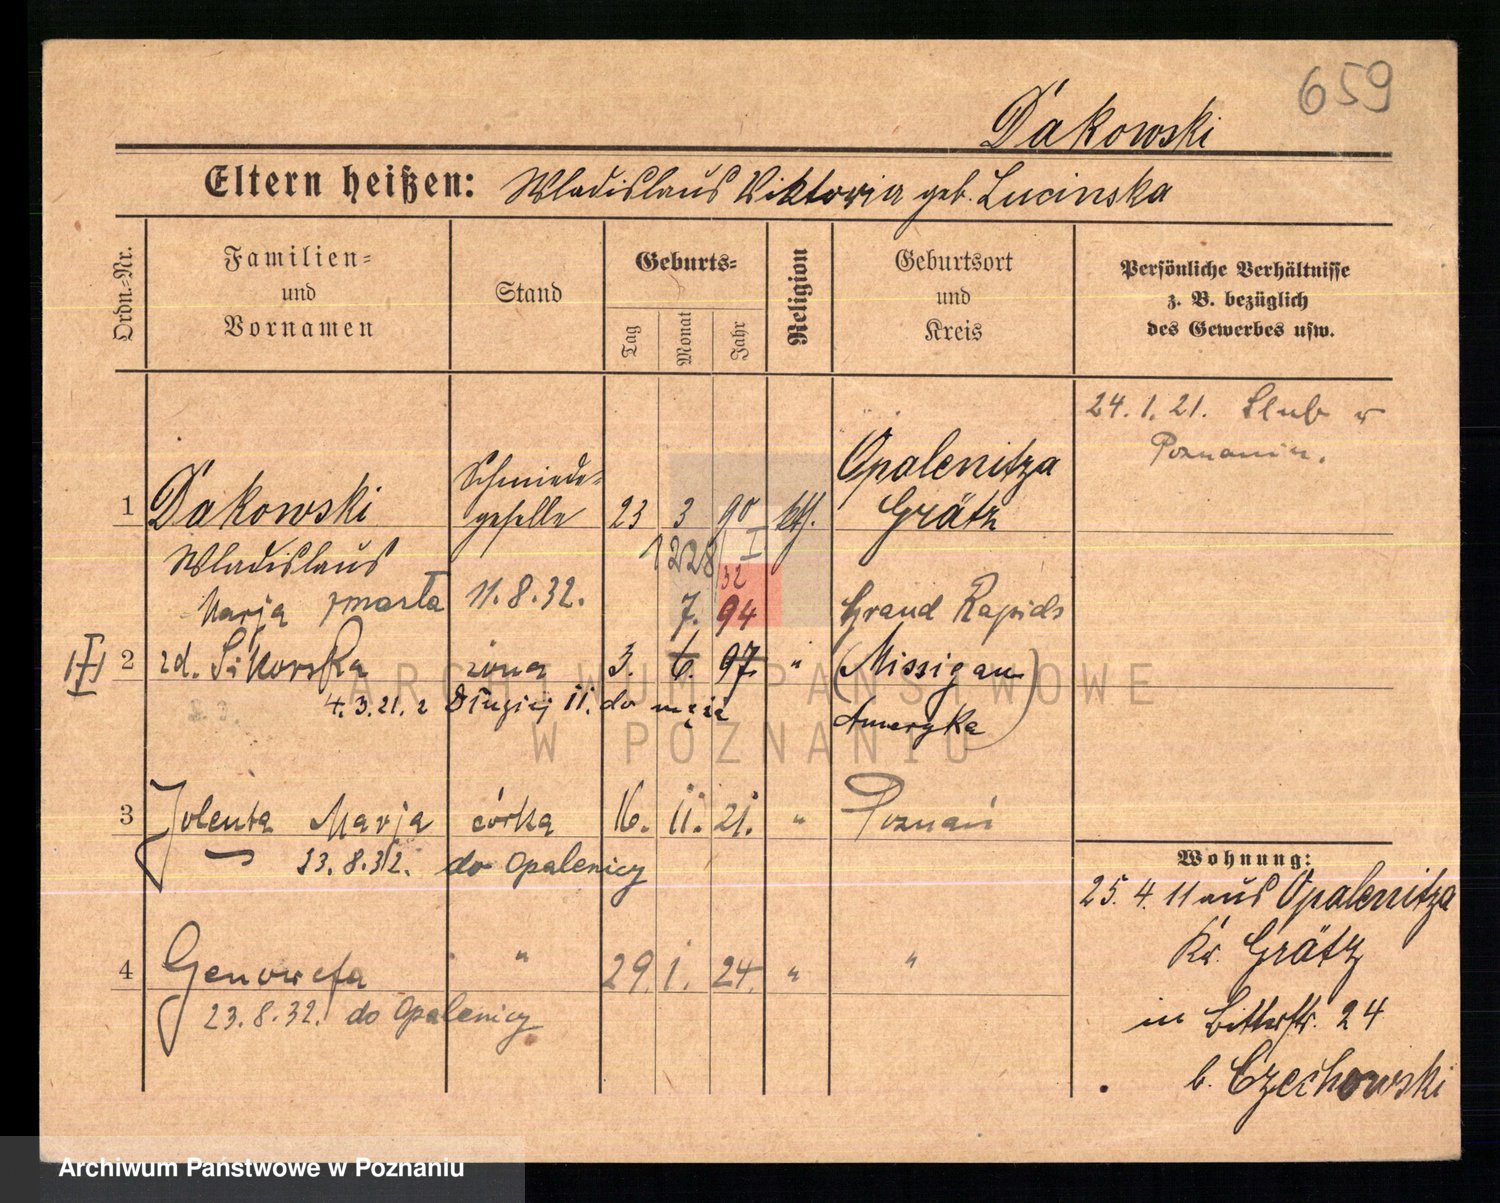 659
Dakowski
Eltern heißen: Wladislaus Viktoria geb. Lucinska
Ordn.-Nr.
Familien-
und
Vornamen
Stand
Geburts-
Tag
Monat
Jahr
Religion
Geburtsort
und
Kreis
Persönliche Verhältnisse
z. B. bezüglich
des Gewerbes usw.
24. 1. 21. Slub w
Poznaniu.
1 Dakowski
Wladislaus
Schmiede-
geselle
23 3 90 kth.
Opalenitza
Grätz
1228 I
32
Marja zmarła 11.8.32.
7. 94
Grand Rapids
III 2 zd. Sikorska żona 3. 6. 97. "
(Missigan)
Ameryka
4.3.21. z Długiej 11. do męża
3 Jolenta Marja córka 16. 11. 21. " Poznań
23.8.32. do Opalenicy
4 Genowefa " 29. 1. 24. " "
23.8.32. do Opalenicy
Wohnung:
25. 4. 11 aus Opalenitza
Kr. Grätz
in Bitterstr. 24
b. Czechowski
ARCHIWUM PAŃSTWOWE
W POZNANIU
Archiwum Państwowe w Poznaniu